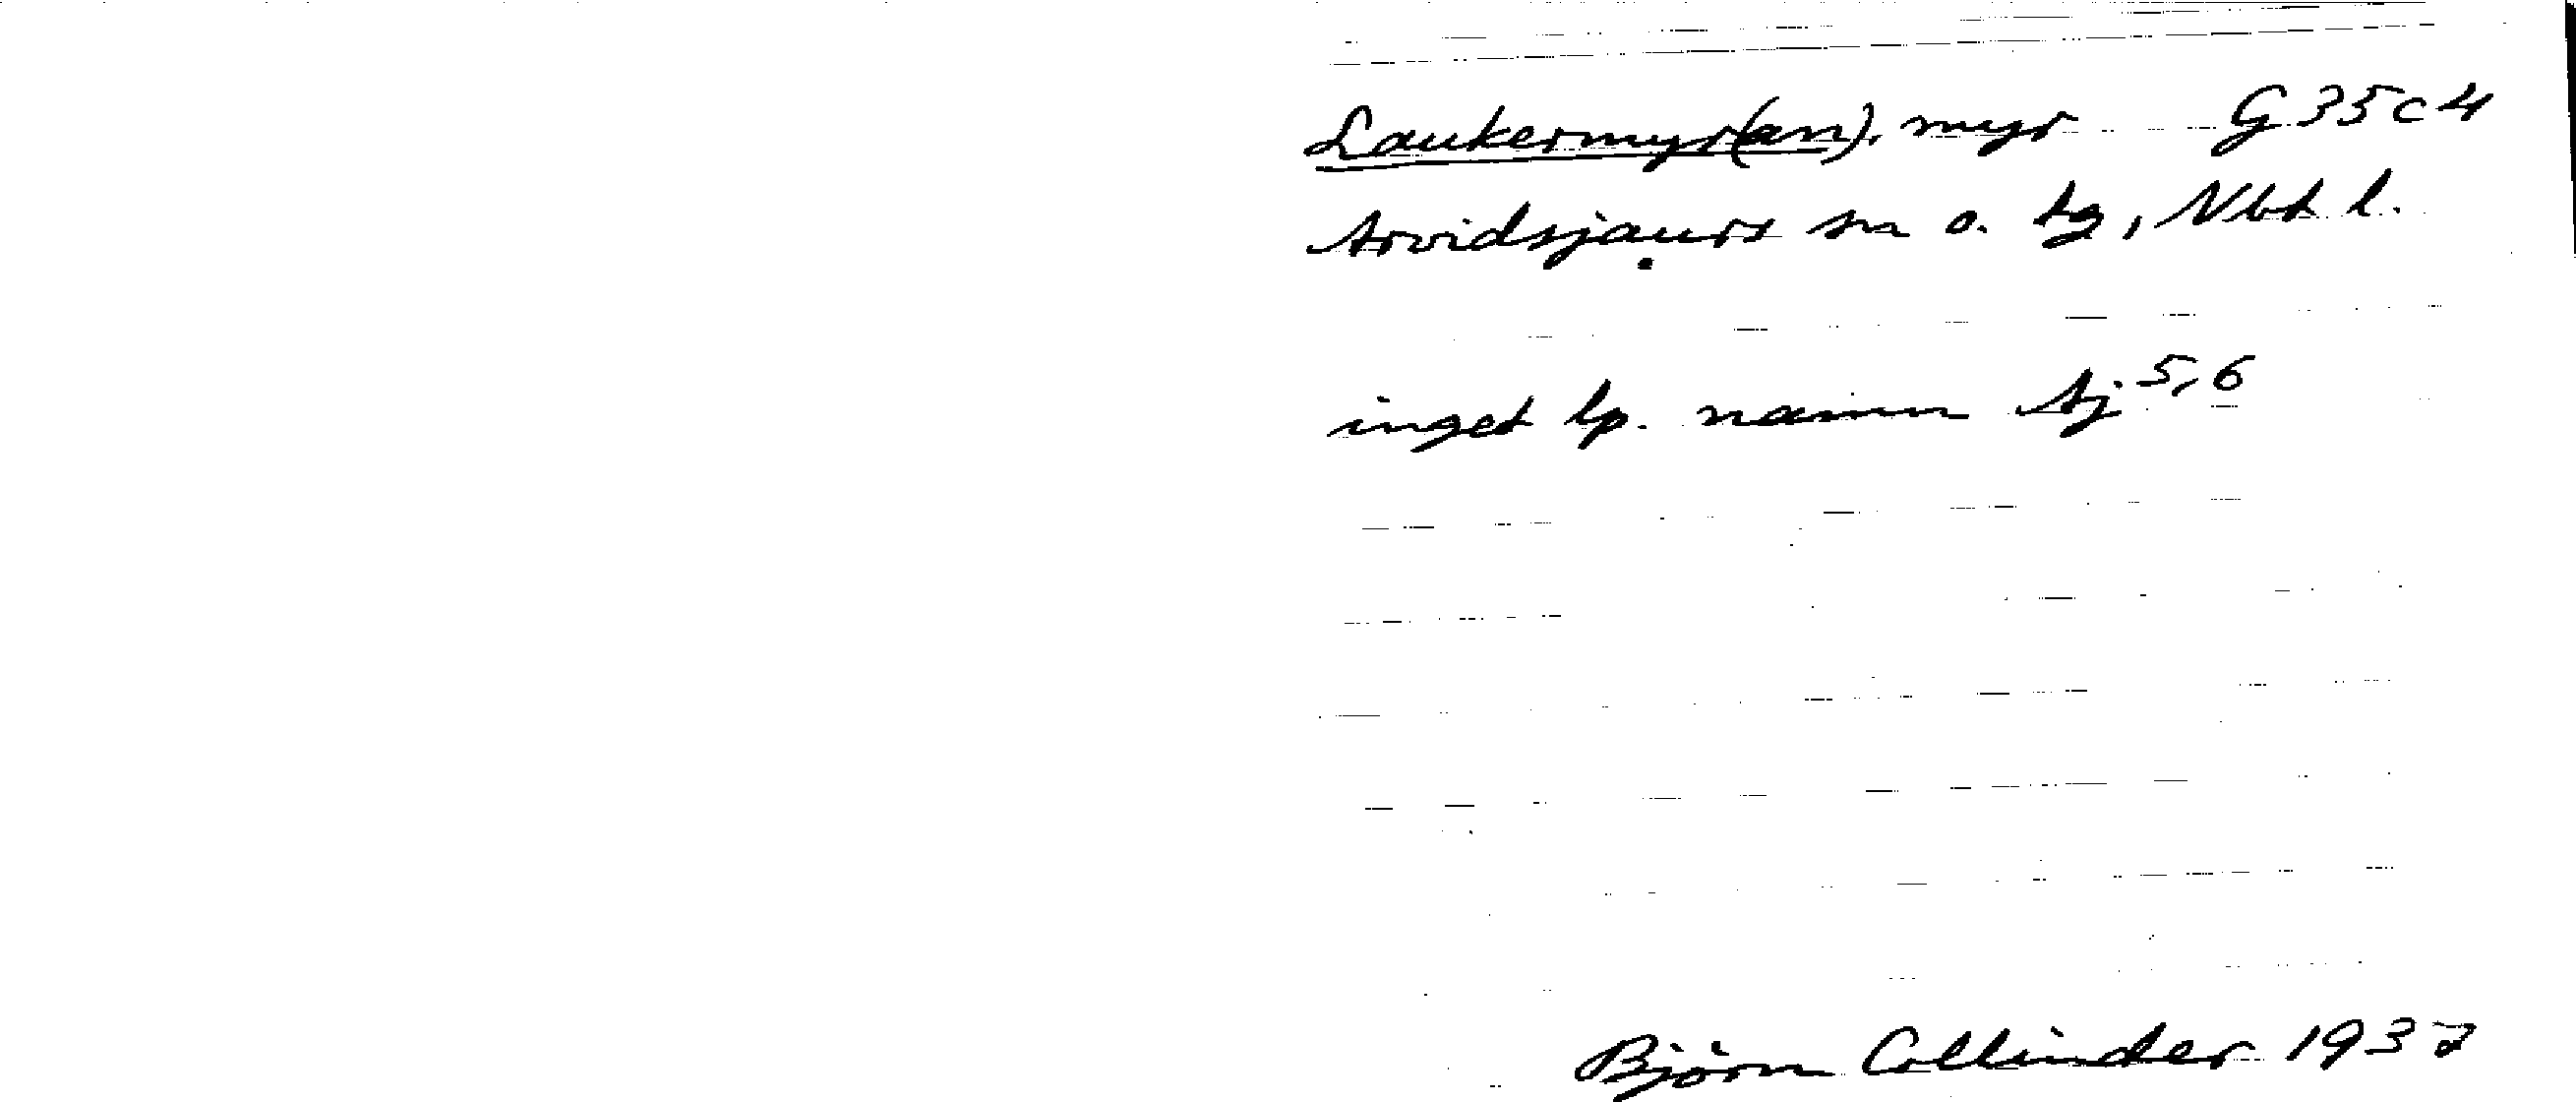 Laukermyr(an), myr G 35 c 4
Arvidsjaurs sn o. tg, Nbt l.
inget lp. namn Aj 5, 6
Björn Collinder 1937